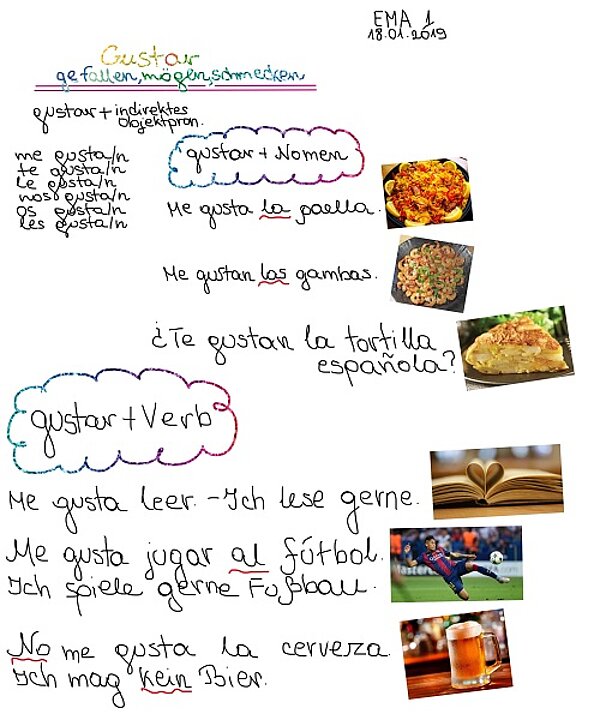 EMA 1
18.01.2019
Gustar
gefallen, mögen, schmecken
gustar + indirektes
Objektpron.
me gusta/n
te gusta/n
le gusta/n
nos gusta/n
os gusta/n
les gusta/n
gustar + Nomen
Me gusta la paella.
Me gustan las gambas.
¿Te gustan la tortilla
española?
gustar + Verb
Me gusta leer. - Ich lese gerne.
Me gusta jugar al fútbol.
Ich spiele gerne Fußball.
No me gusta la cerveza.
Ich mag kein Bier.